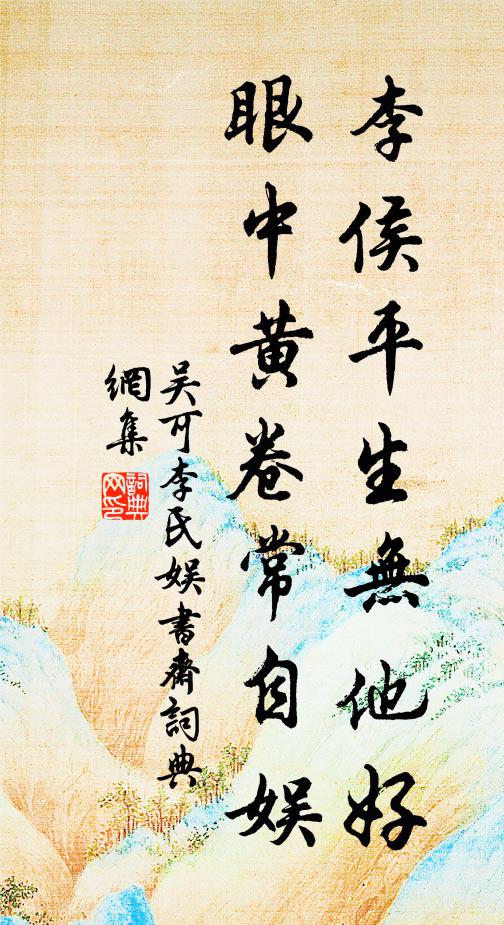 李侯平生無他好
眼中黃卷常自娛
吴可李氏娱書齋詞典
網集
詞典
网印